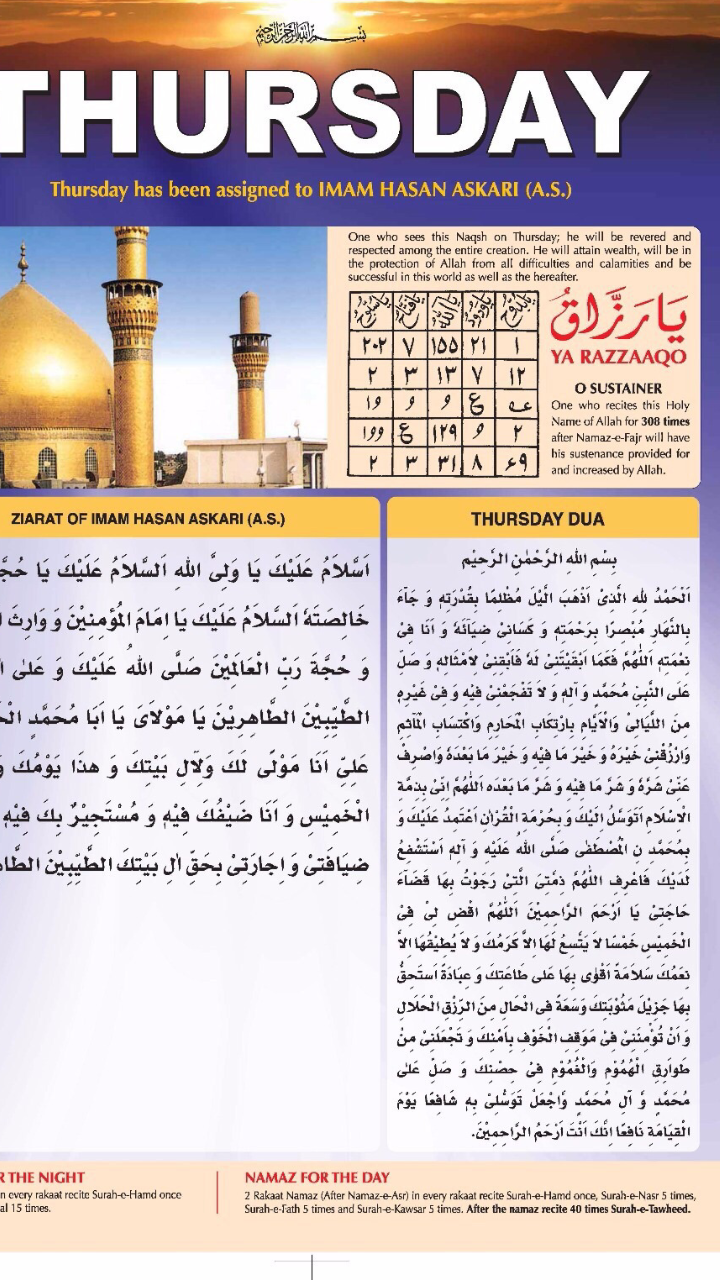 بِسْمِ اللهِ الرَّحْمٰنِ الرَّحِيْمِ
THURSDAY
Thursday has been assigned to IMAM HASAN ASKARI (A.S.)
One who sees this Naqsh on Thursday; he will be revered and
respected among the entire creation. He will attain wealth, will be in
the protection of Allah from all difficulties and calamities and be
successful in this world as well as the hereafter.
۲۰۲ ۷ ۱۵۵ ۲۱ ۱
۲ ۳ ۱۳ ۷ ۱۲
۲ ۳ ۳۱ ۸ ۶۹
يَا رَزَّاقُ
YA RAZZAAQO
O SUSTAINER
One who recites this Holy
Name of Allah for 308 times
after Namaz-e-Fajr will have
his sustenance provided for
and increased by Allah.
ZIARAT OF IMAM HASAN ASKARI (A.S.)
اَسَّلَامُ عَلَيْكَ يَا وَلِىَّ اللهِ اَلسَّلَامُ عَلَيْكَ يَا حُجَّ
خَالِصَتَهُ اَلسَّلَامُ عَلَيْكَ يَا اِمَامَ الْمُؤمِنِيْنَ وَ وَارِثَ
وَ حُجَّةَ رَبِّ الْعَالَمِيْنَ صَلَّى اللهُ عَلَيْكَ وَ عَلٰى
الطَّيِّبِيْنَ الطَّاهِرِيْنَ يَا مَوْلَاىَ يَا اَبَا مُحَمَّدٍ
عَلِىٍّ اَنَا مَوْلًى لَكَ وَلِاٰلِ بَيْتِكَ وَ هذَا يَوْمُكَ وَ
الْخَمِيْسِ وَ اَنَا ضَيْفُكَ فِيْهِ وَ مُسْتَجِيْرٌ بِكَ فِيْهِ
ضِيَافَتِىْ وَ اِجَارَتِىْ بِحَقِّ اٰلِ بَيْتِكَ الطَّيِّبِيْنَ الطَّا
THURSDAY DUA
بِسْمِ اللهِ الرَّحْمٰنِ الرَّحِيْمِ
اَلْحَمْدُ لِلهِ الَّذِىْ اَذْهَبَ الَّيْلَ مُظْلِمًا بِقُدْرَتِهٖ وَ جَآءَ
بِالنَّهَارِ مُبْصِرًا بِرَحْمَتِهٖ وَ كَسَانِىْ ضِيَآئَهُ وَ اَنَا فِىْ
نِعْمَتِهٖ اَللّٰهُمَّ فَكَمَا اَبْقَيْتَنِىْ لَهُ فَاَبْقِنِىْ لِاَمْثَالِهٖ وَ صَلِّ
عَلَى النَّبِىِّ مُحَمَّدٍ وَ اٰلِهٖ وَ لَا تَفْجَعْنِىْ فِيْهِ وَ فِىْ غَيْرِهٖ
مِنَ اللَّيَالِىْ وَالْاَيَّامِ بِارْتِكَابِ الْمَحَارِمِ وَاكْتِسَابِ الْمَاٰثِمِ
وَارْزُقْنِىْ خَيْرَهُ وَ خَيْرَ مَا فِيْهِ وَ خَيْرَ مَا بَعْدَهُ وَاصْرِفْ
عَنِّىْ شَرَّهُ وَ شَرَّ مَا فِيْهِ وَ شَرَّ مَا بَعْدَهُ اَللّٰهُمَّ اِنِّىْ بِذِمَّةِ
الْاِسْلَامِ اَتَوَسَّلُ اِلَيْكَ وَ بِحُرْمَةِ الْقُرْاٰنِ اَعْتَمِدُ عَلَيْكَ وَ
بِمُحَمَّدٍ نِ الْمُصْطَفٰى صَلَّى اللهُ عَلَيْهِ وَ اٰلِهٖ اَسْتَشْفِعُ
لَدَيْكَ فَاعْرِفِ اللّٰهُمَّ ذِمَّتِىَ الَّتِىْ رَجَوْتُ بِهَا قَضَآءَ
حَاجَتِىْ يَا اَرْحَمَ الرَّاحِمِيْنَ اَللّٰهُمَّ اقْضِ لِىْ فِىْ
الْخَمِيْسِ خَمْسًا لَا يَتَّسِعُ لَهَا اِلَّا كَرَمُكَ وَ لَا يُطِيْقُهَا اِلَّا
نِعَمُكَ سَلَامَةً اَقْوٰى بِهَا عَلٰى طَاعَتِكَ وَ عِبَادَةً اَسْتَحِقُّ
بِهَا جَزِيْلَ مَثُوْبَتِكَ وَسَعَةً فِى الْحَالِ مِنَ الرِّزْقِ الْحَلَالِ
وَ اَنْ تُؤْمِنَنِىْ فِىْ مَوَقِفِ الْخَوْفِ بِاَمْنِكَ وَ تَجْعَلَنِىْ مِنْ
طَوَارِقِ الْهُمُوْمِ وَالْغُمُوْمِ فِىْ حِصْنِكَ وَ صَلِّ عَلٰى
مُحَمَّدٍ وَّ اٰلِ مُحَمَّدٍ وَّاجْعَلْ تَوَسُّلِىْ بِهٖ شَافِعًا يَوْمَ
الْقِيَامَةِ نَافِعًا اِنَّكَ اَنْتَ اَرْحَمُ الرَّاحِمِيْنَ.
R THE NIGHT
n every rakaat recite Surah-e-Hamd once
al 15 times.
NAMAZ FOR THE DAY
2 Rakaat Namaz (After Namaz-e-Asr) in every rakaat recite Surah-e-Hamd once, Surah-e-Nasr 5 times,
Surah-e-Fath 5 times and Surah-e-Kawsar 5 times. After the namaz recite 40 times Surah-e-Tawheed.